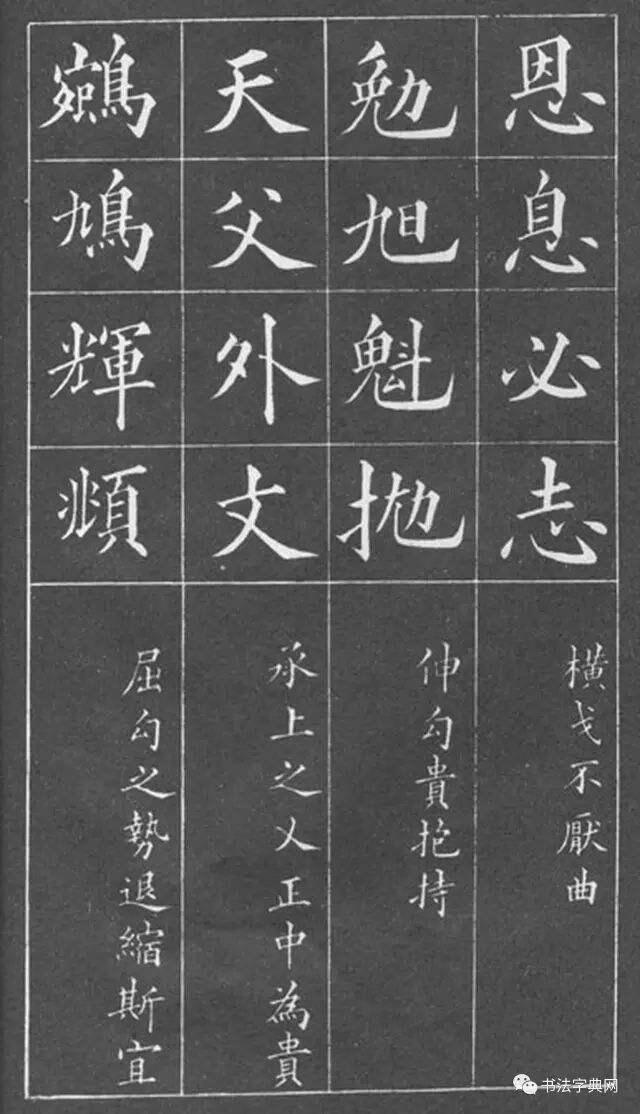 恩息必志
橫戈不厭曲
勉旭魁抛
伸勾貴抱持
天父外文
承上之乂正中為貴
鳩輝頫
屈勾之勢退縮斯宜
书法字典网